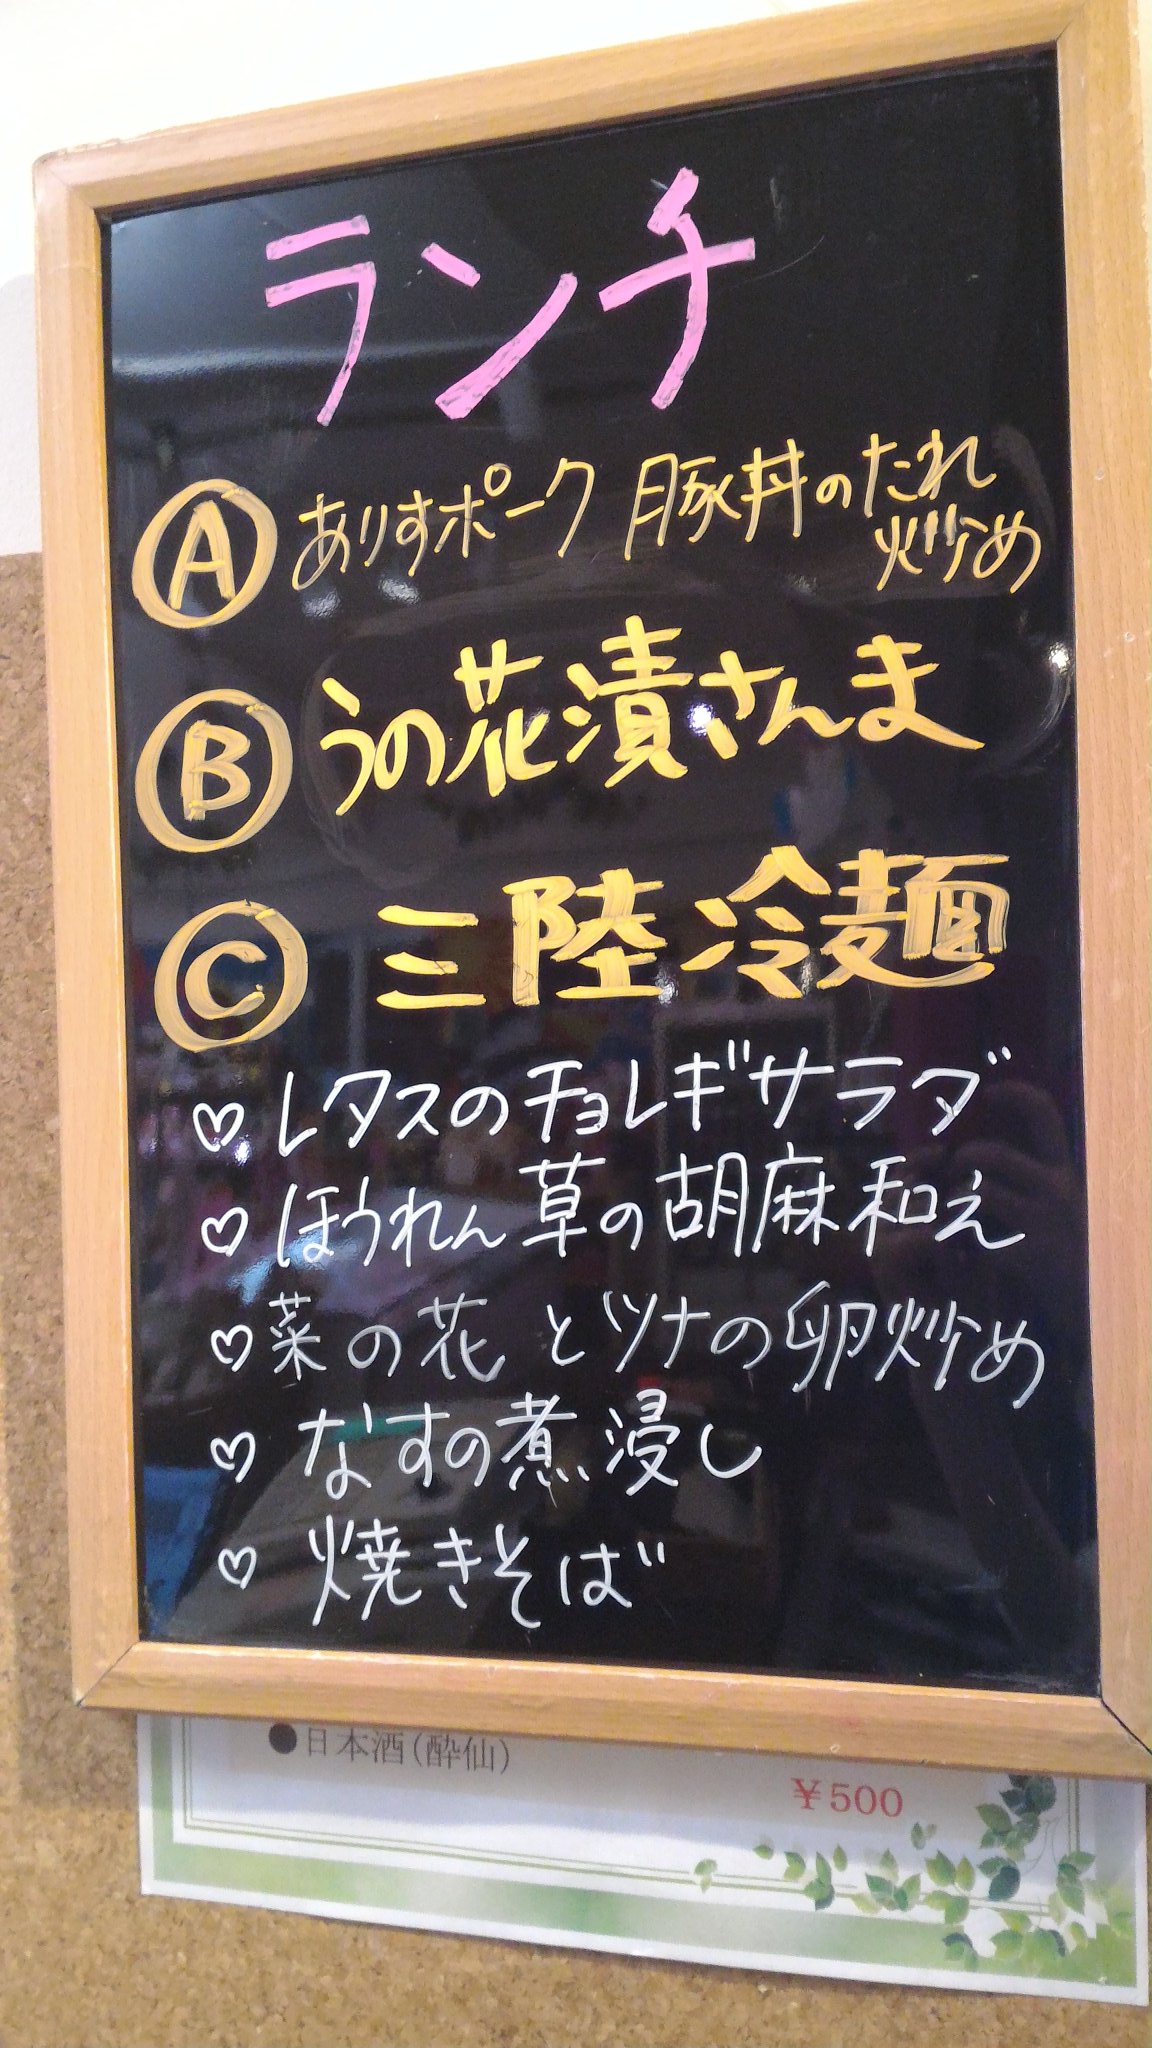 ランチ
Ⓐ ありすポーク 豚丼のたれ
炒め
Ⓑ うの花漬さんま
Ⓒ 三陸冷麺
♡ レタスのチョレギサラダ
♡ ほうれん草の胡麻和え
♡ 菜の花とツナの卵炒め
♡ なすの煮浸し
♡ 焼きそば
●日本酒(酔仙)
￥500